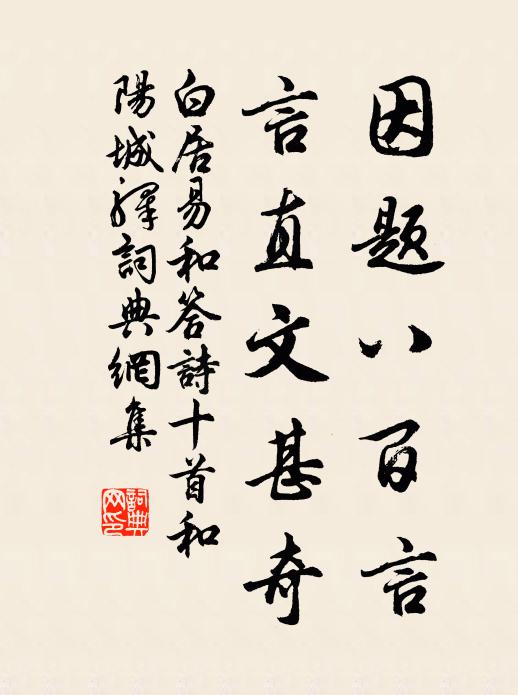 因题八百言
言直文甚奇
白居易和答詩十首和
陽城驛詞典網集
詞典網印